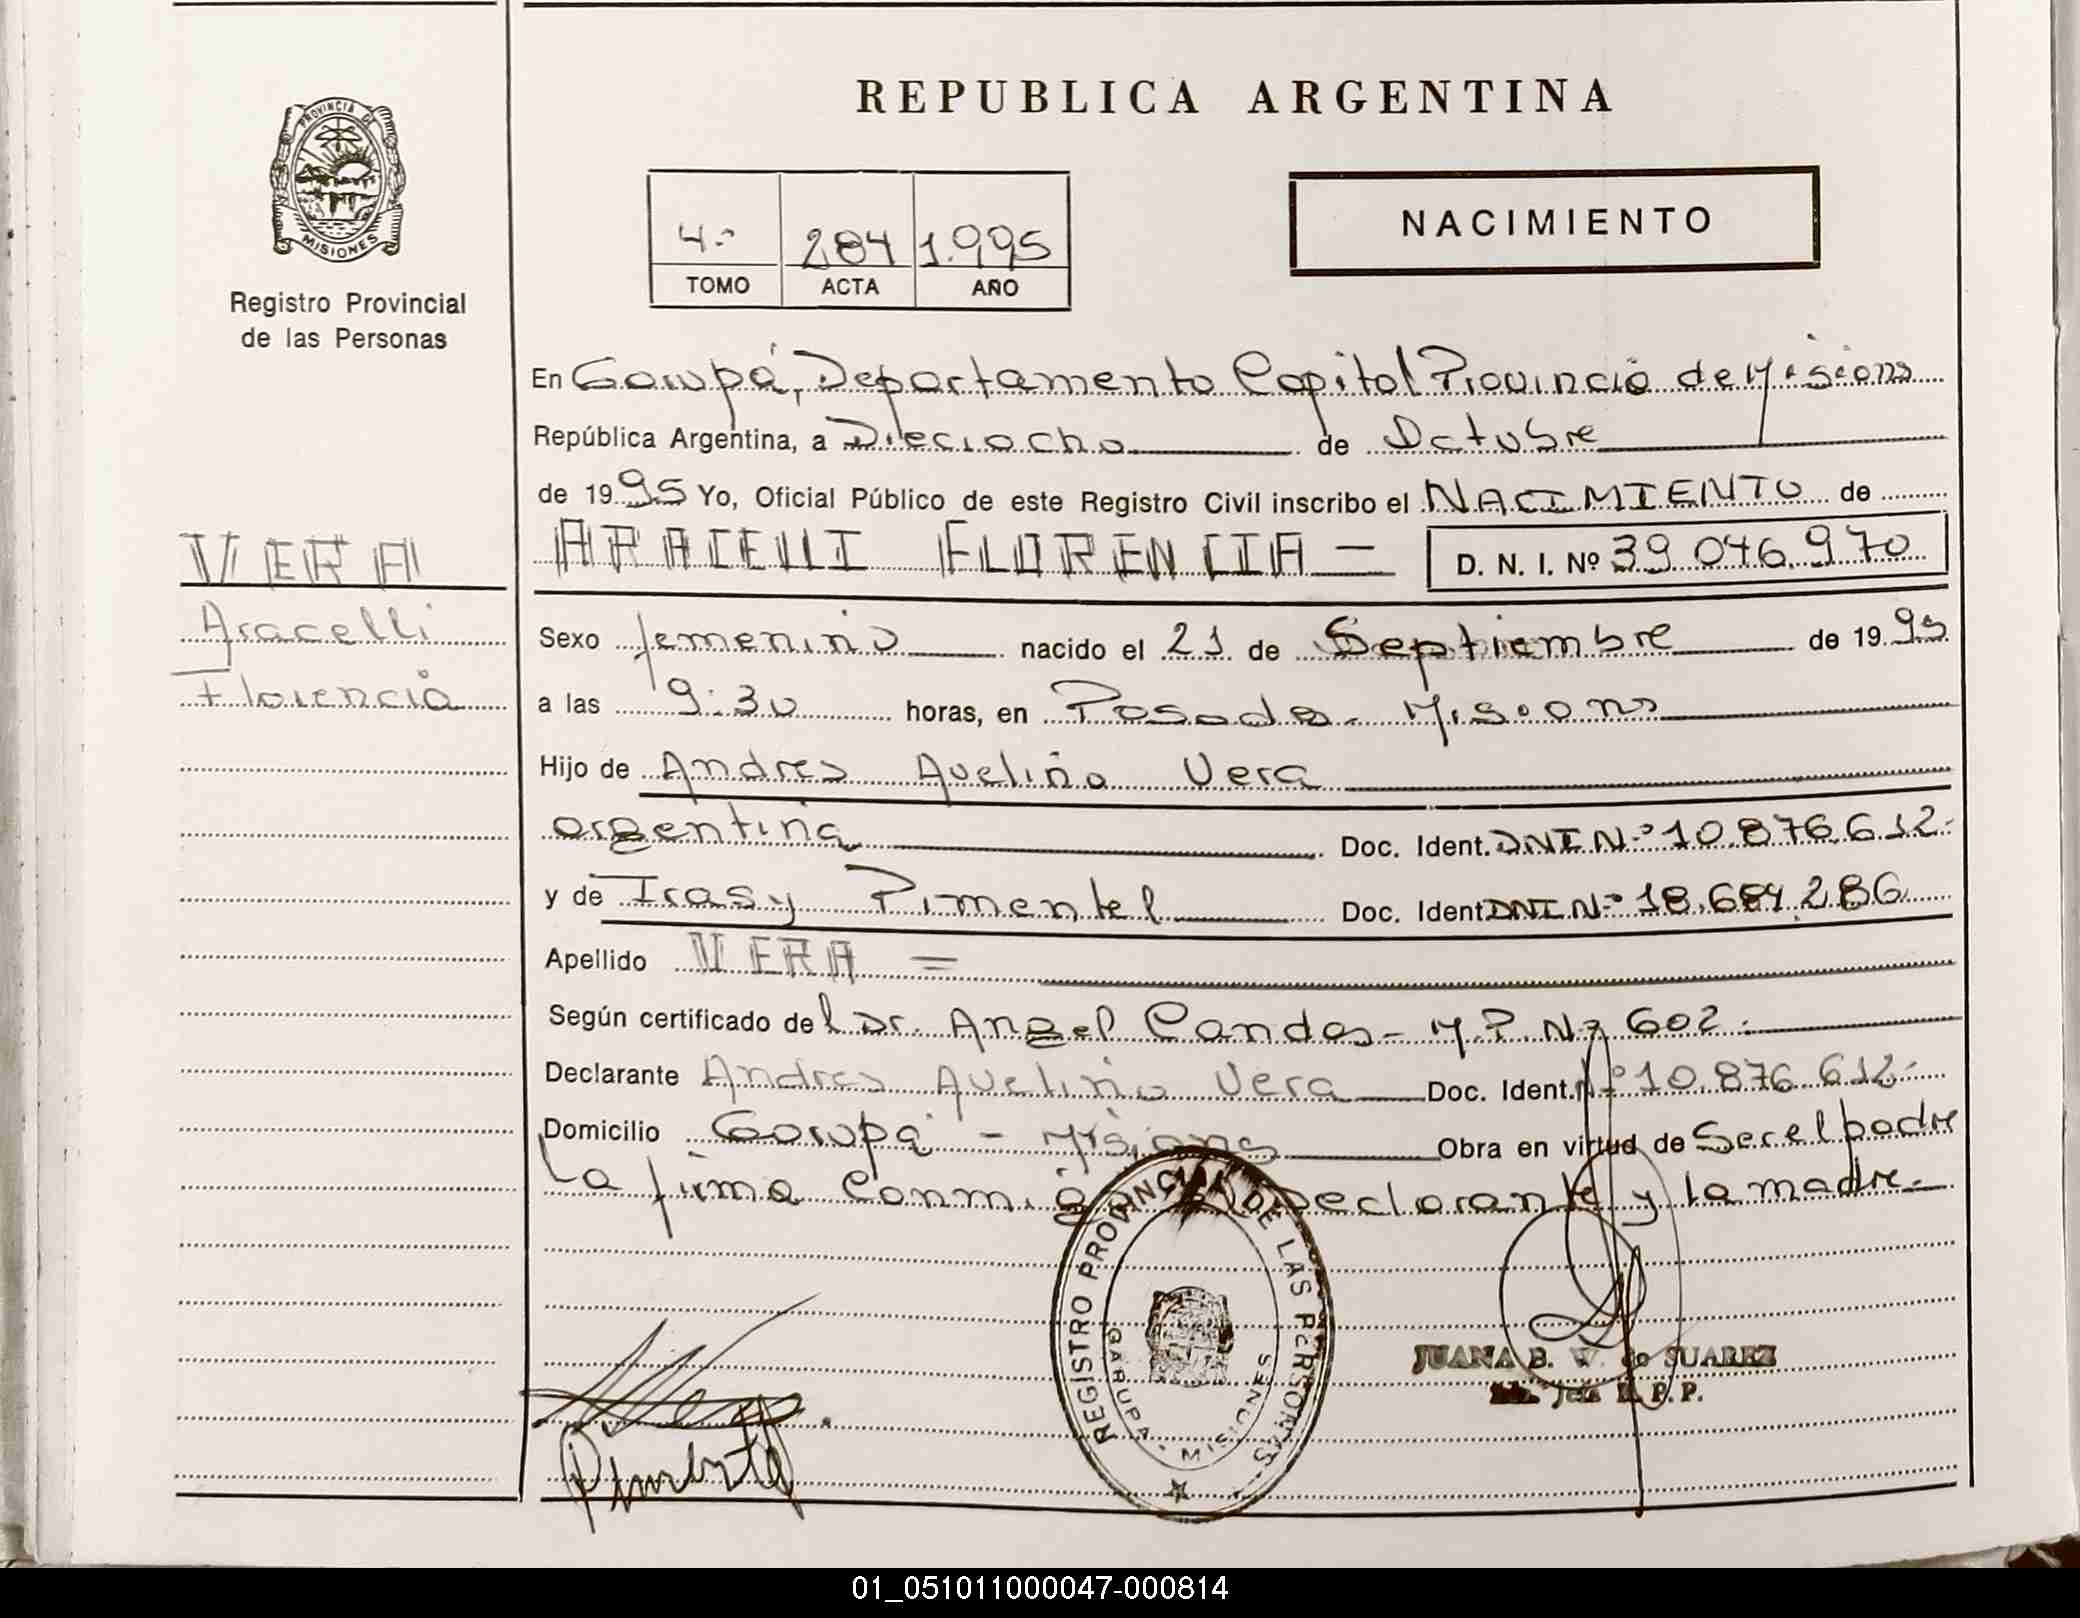 REPUBLICA ARGENTINA
PROVINCIA DE
MISIONES
Registro Provincial
de las Personas
4.º 284 1.995
TOMO ACTA AÑO
NACIMIENTO
En Garupá, Departamento Capital Provincia de Misiones
República Argentina, a Dieciocho de Octubre
de 1995 Yo, Oficial Público de este Registro Civil inscribo el NACIMIENTO de
VERA
ARACELLI FLORENCIA = D. N. I. Nº 39.046.970
Aracelli
Sexo femenino nacido el 21 de Septiembre de 1995
Florencia
a las 9:30 horas, en Posadas - Misiones
Hijo de Andres Avelino Vera
argentina Doc. Ident. DNI Nº 10.876.612.
y de Irasy Pimentel Doc. Ident. DNI Nº 18.684.286
Apellido VERA =
Según certificado del Dr. Angel Candas - M.P. Nº 602.
Declarante Andres Avelino Vera Doc. Ident. Nº 10.876.612.
Domicilio Garupá - Misiones Obra en virtud de Ser el padre
La firma Conmigo Declarante y la madre.
REGISTRO PROVINCIAL DE LAS PERSONAS
GARUPA - MISIONES
JUANA B. W. de SUAREZ
Jefa R. P. P.
Pimentel
01_051011000047-000814